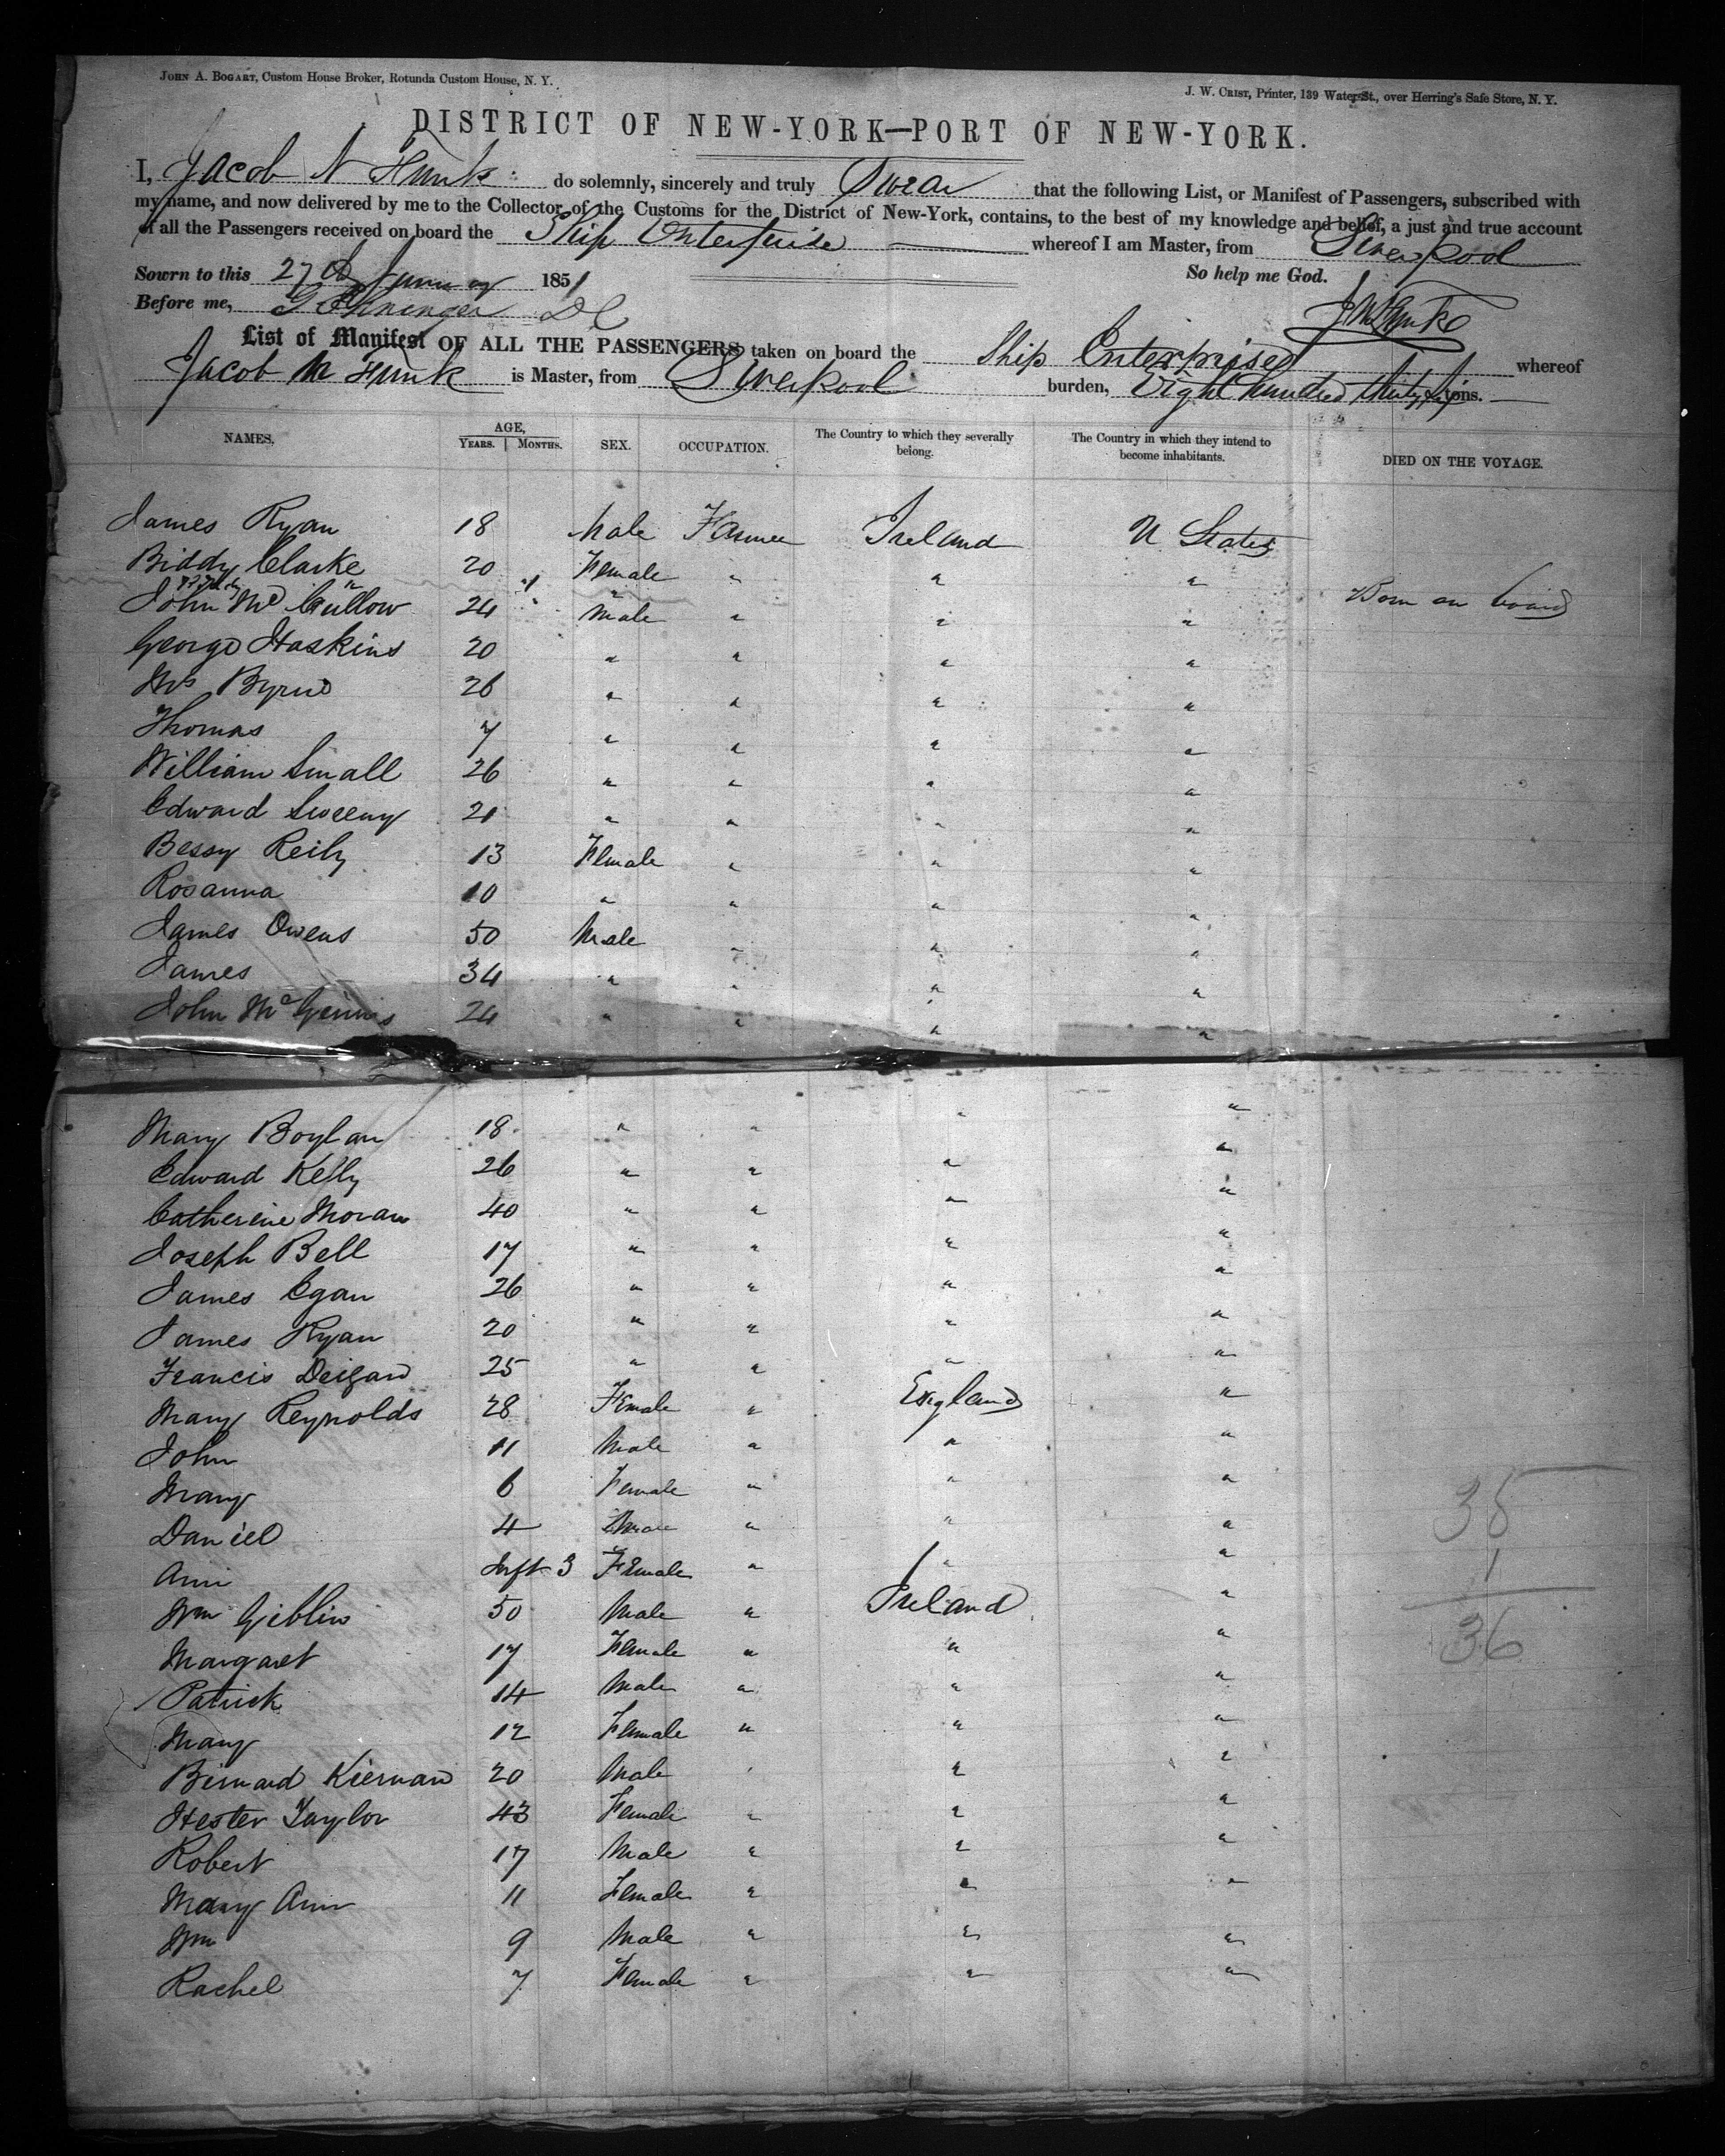 JOHN A. BOGART, Custom House Broker, Rotunda Custom House, N. Y.
J. W. CRIST, Printer, 139 Water St., over Herring's Safe Store, N. Y.
DISTRICT OF NEW-YORK—PORT OF NEW-YORK.
I, Jacob N Funk do solemnly, sincerely and truly Swear that the following List, or Manifest of Passengers, subscribed with
my name, and now delivered by me to the Collector of the Customs for the District of New-York, contains, to the best of my knowledge and belief, a just and true account
of all the Passengers received on board the Ship Enterprise whereof I am Master, from Liverpool
Sowrn to this 27 January 1851 So help me God.
Before me,
List of Manifest OF ALL THE PASSENGERS taken on board the Ship Enterprise whereof
Jacob M Funk is Master, from Liverpool burden, Eight hundred thirty six tons.
NAMES. AGE, YEARS. MONTHS. SEX. OCCUPATION. The Country to which they severally belong. The Country in which they intend to become inhabitants. DIED ON THE VOYAGE.
James Ryan 18 Male Farmer Ireland U States
Biddy Clarke 20 Female " " "
" 1 " Born on board
John Mc Cullow 24 Male " " "
George Haskins 20 " " " "
Mrs Byrne 26 " " " "
Thomas 7 " " " "
William Small 26 " " " "
Edward Sweeny 21 " " " "
Bessy Reily 13 Female " " "
Rosanna 10 " " " "
James Owens 50 Male " " "
James 34 " " " "
John Mc Ginnis 24 " " " "
Mary Boylan 18 " " " "
Edward Kelly 26 " " " "
Catherine Moran 40 " " " "
Joseph Bell 17 " " " "
James Egan 26 " " " "
James Ryan 20 " " " "
Francis Deigan 25 " " " "
Mary Reynolds 28 Female " England "
John 11 Male " " "
Mary 6 Female " " "
Daniel 4 Male " " "
Ann Inft 3 Female " " "
Wm Giblin 50 Male " Ireland "
Margaret 17 Female " " "
Patrick 14 Male " " "
Mary 12 Female " " "
Bernard Kiernan 20 Male " " "
Hester Taylor 43 Female " " "
Robert 17 Male " " "
Mary Ann 11 Female " " "
Wm 9 Male " " "
Rachel 7 Female " " "
35
1
36